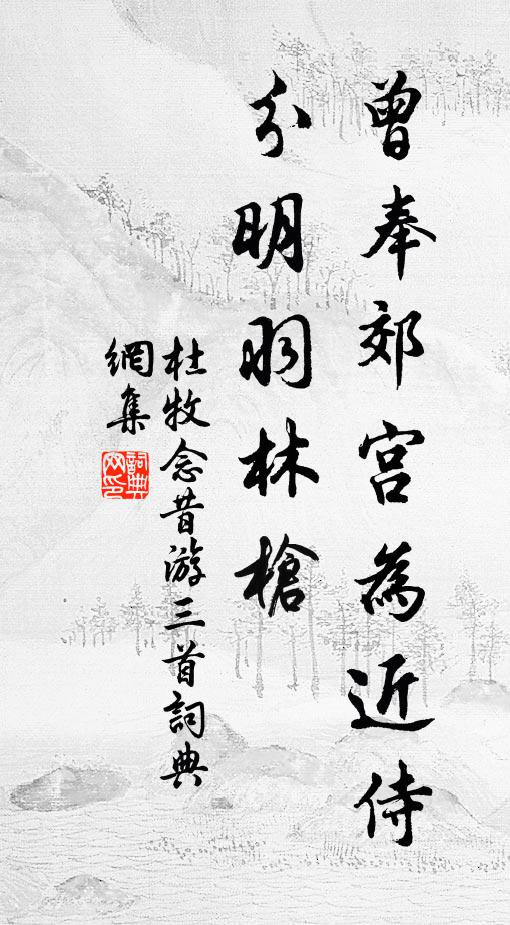 曾奉郊宮為近侍
分明羽林槍
杜牧念昔游三首詞典
網集
詞典
网印